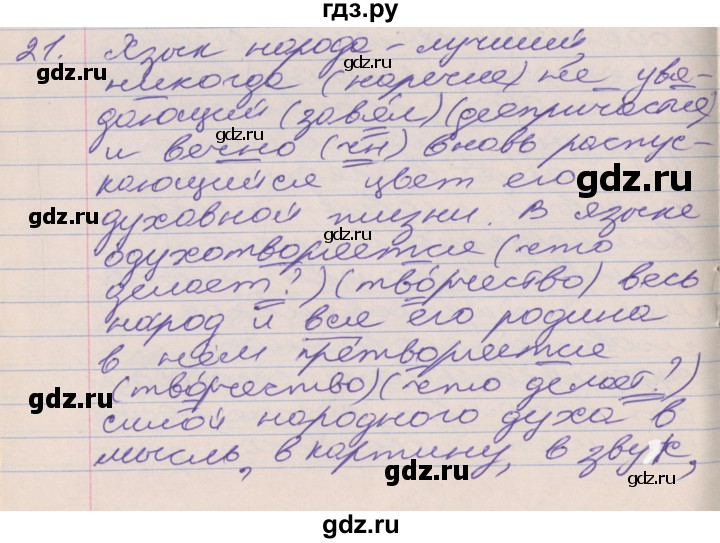 гдз.ру
21. Язык народа - лучший,
никогда (наречие) не увя-
дающий (завял) (деепричастие)
и вечно (чн) вновь распус-
кающийся цвет его
духовной жизни. В языке
одухотворяется (что
делает?) (творчество) весь
народ и вся его родина
в нём претворяется
(творчество) (что делает?)
силой народного духа в
мысль, в картину, в звук,
gdz.ru
gdz.ru
gdz.ru
gdz.ru
gdz.ru
gdz.ru
gdz.ru
gdz.ru
gdz.ru
gdz.ru
gdz.ru
gdz.ru
gdz.ru
gdz.ru